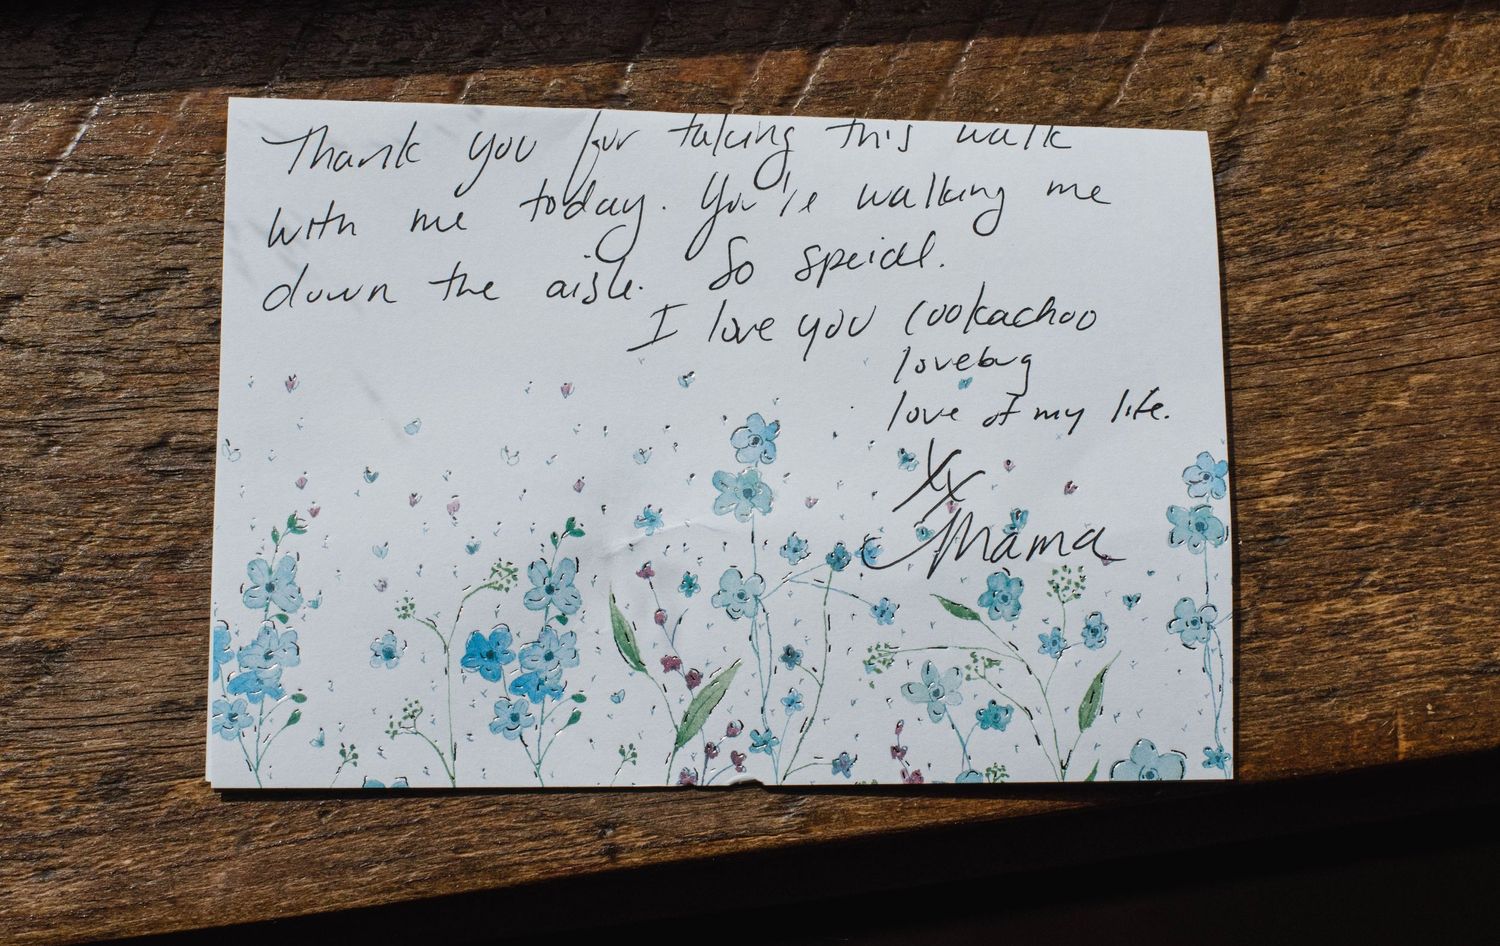 Thank you for taking this walk
with me today. You're walking me
down the aisle. So speical.
I love you cookachoo
lovebug
love of my life.
xx
Mama